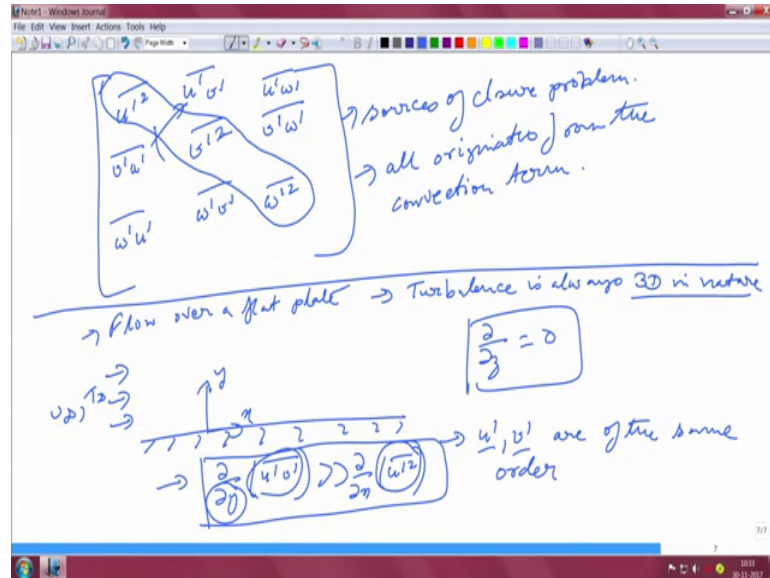 Note1 - Windows Journal
File Edit View Insert Actions Tools Help
Page Width
u'² u'v' u'w'
v'u' v'² v'w'
w'u' w'v' w'²
→ sources of closure problem.
→ all originates from the
convection term.
→ Flow over a flat plate → Turbulence is always 3D in nature
∂/∂z = 0
U∞, T∞
y
x
→ ∂/∂y (u'v') >> ∂/∂x (u'²) → u', v' are of the same
order
7/7
7
10:33
30-11-2017